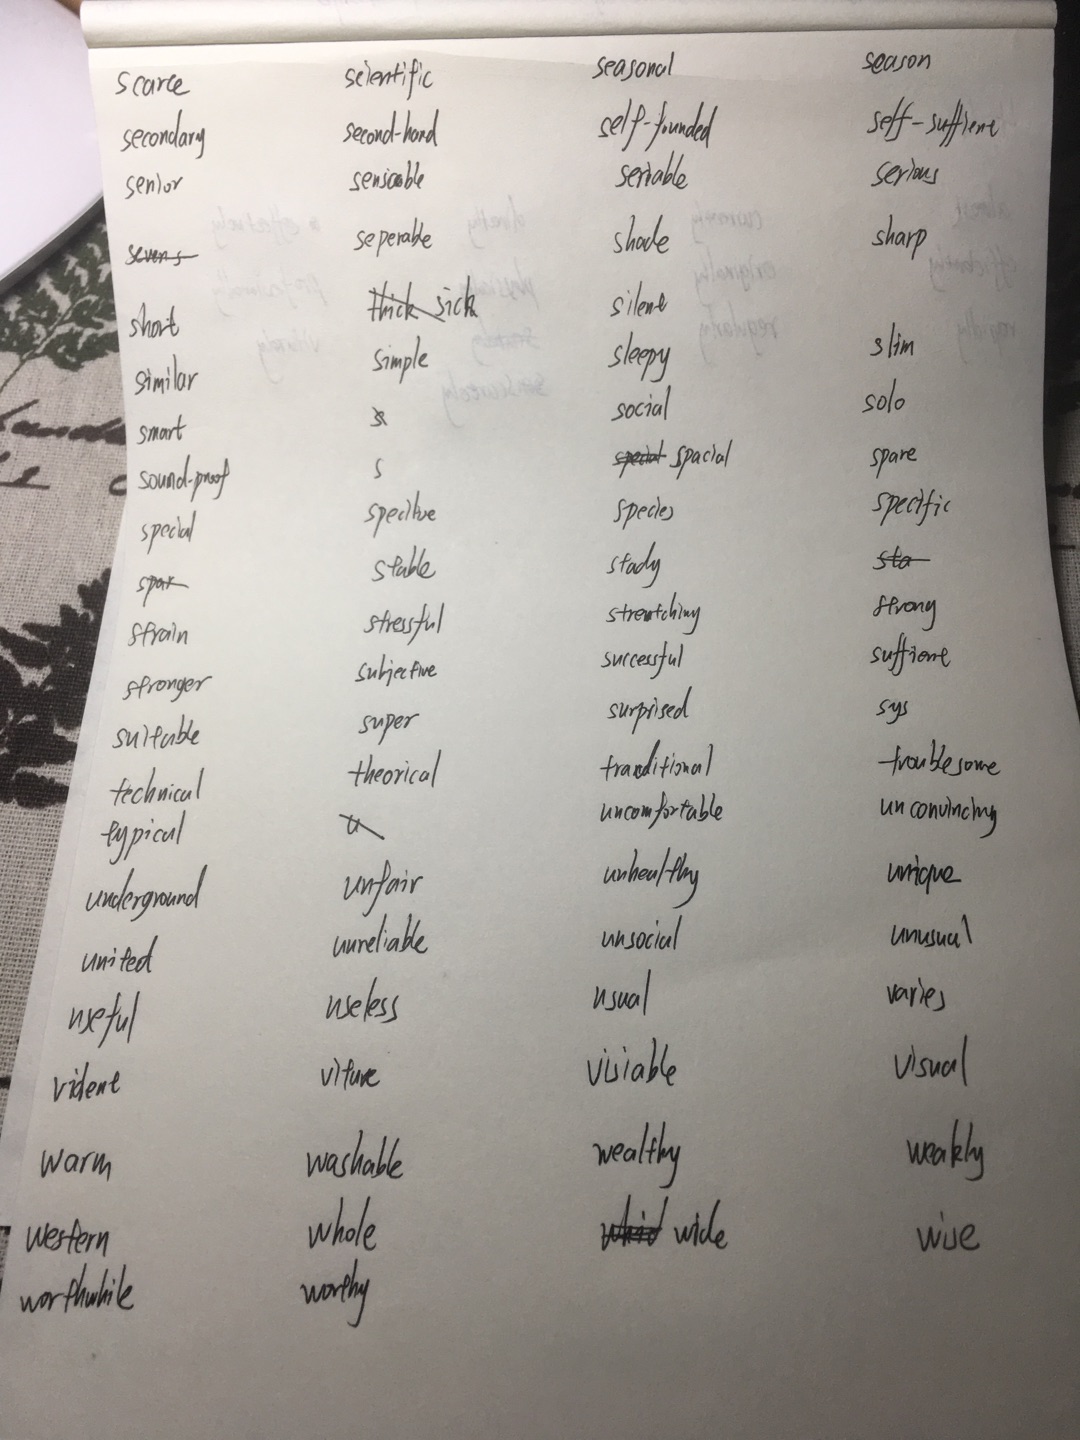 scarce scientific seasonal season
secondary second-hand self-founded self-suffient
senior seriable serious
seperable shade sharp
short sick silent
similar simple sleepy slim
smart social solo
sound-proof s spacial spare
special species specific
stable stady
strain stressful strentching strong
stronger subjective successful suffient
suitable super surprised sys
technical theorical tranditional troublesome
typical uncomfortable unconvincing
underground unfair unhealthy unique
united unreliable unsocial unusual
useful useless usual varies
vident viture visiable visual
warm washable wealthy weakly
western whole wide wise
worthwhile worthy